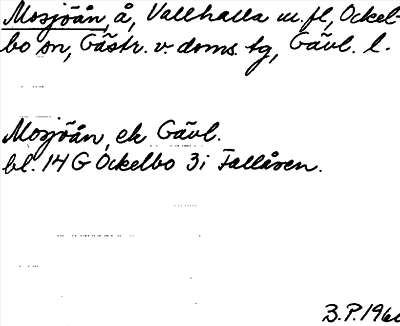 Mosjöån, å, Vallhalla m.fl, Ockel-
bo sn, Gästr. v. doms. tg, Gävl. l.
Mosjöån, ek Gävl.
bl. 14 G Ockelbo 3i Fallåsen.
B.P.196